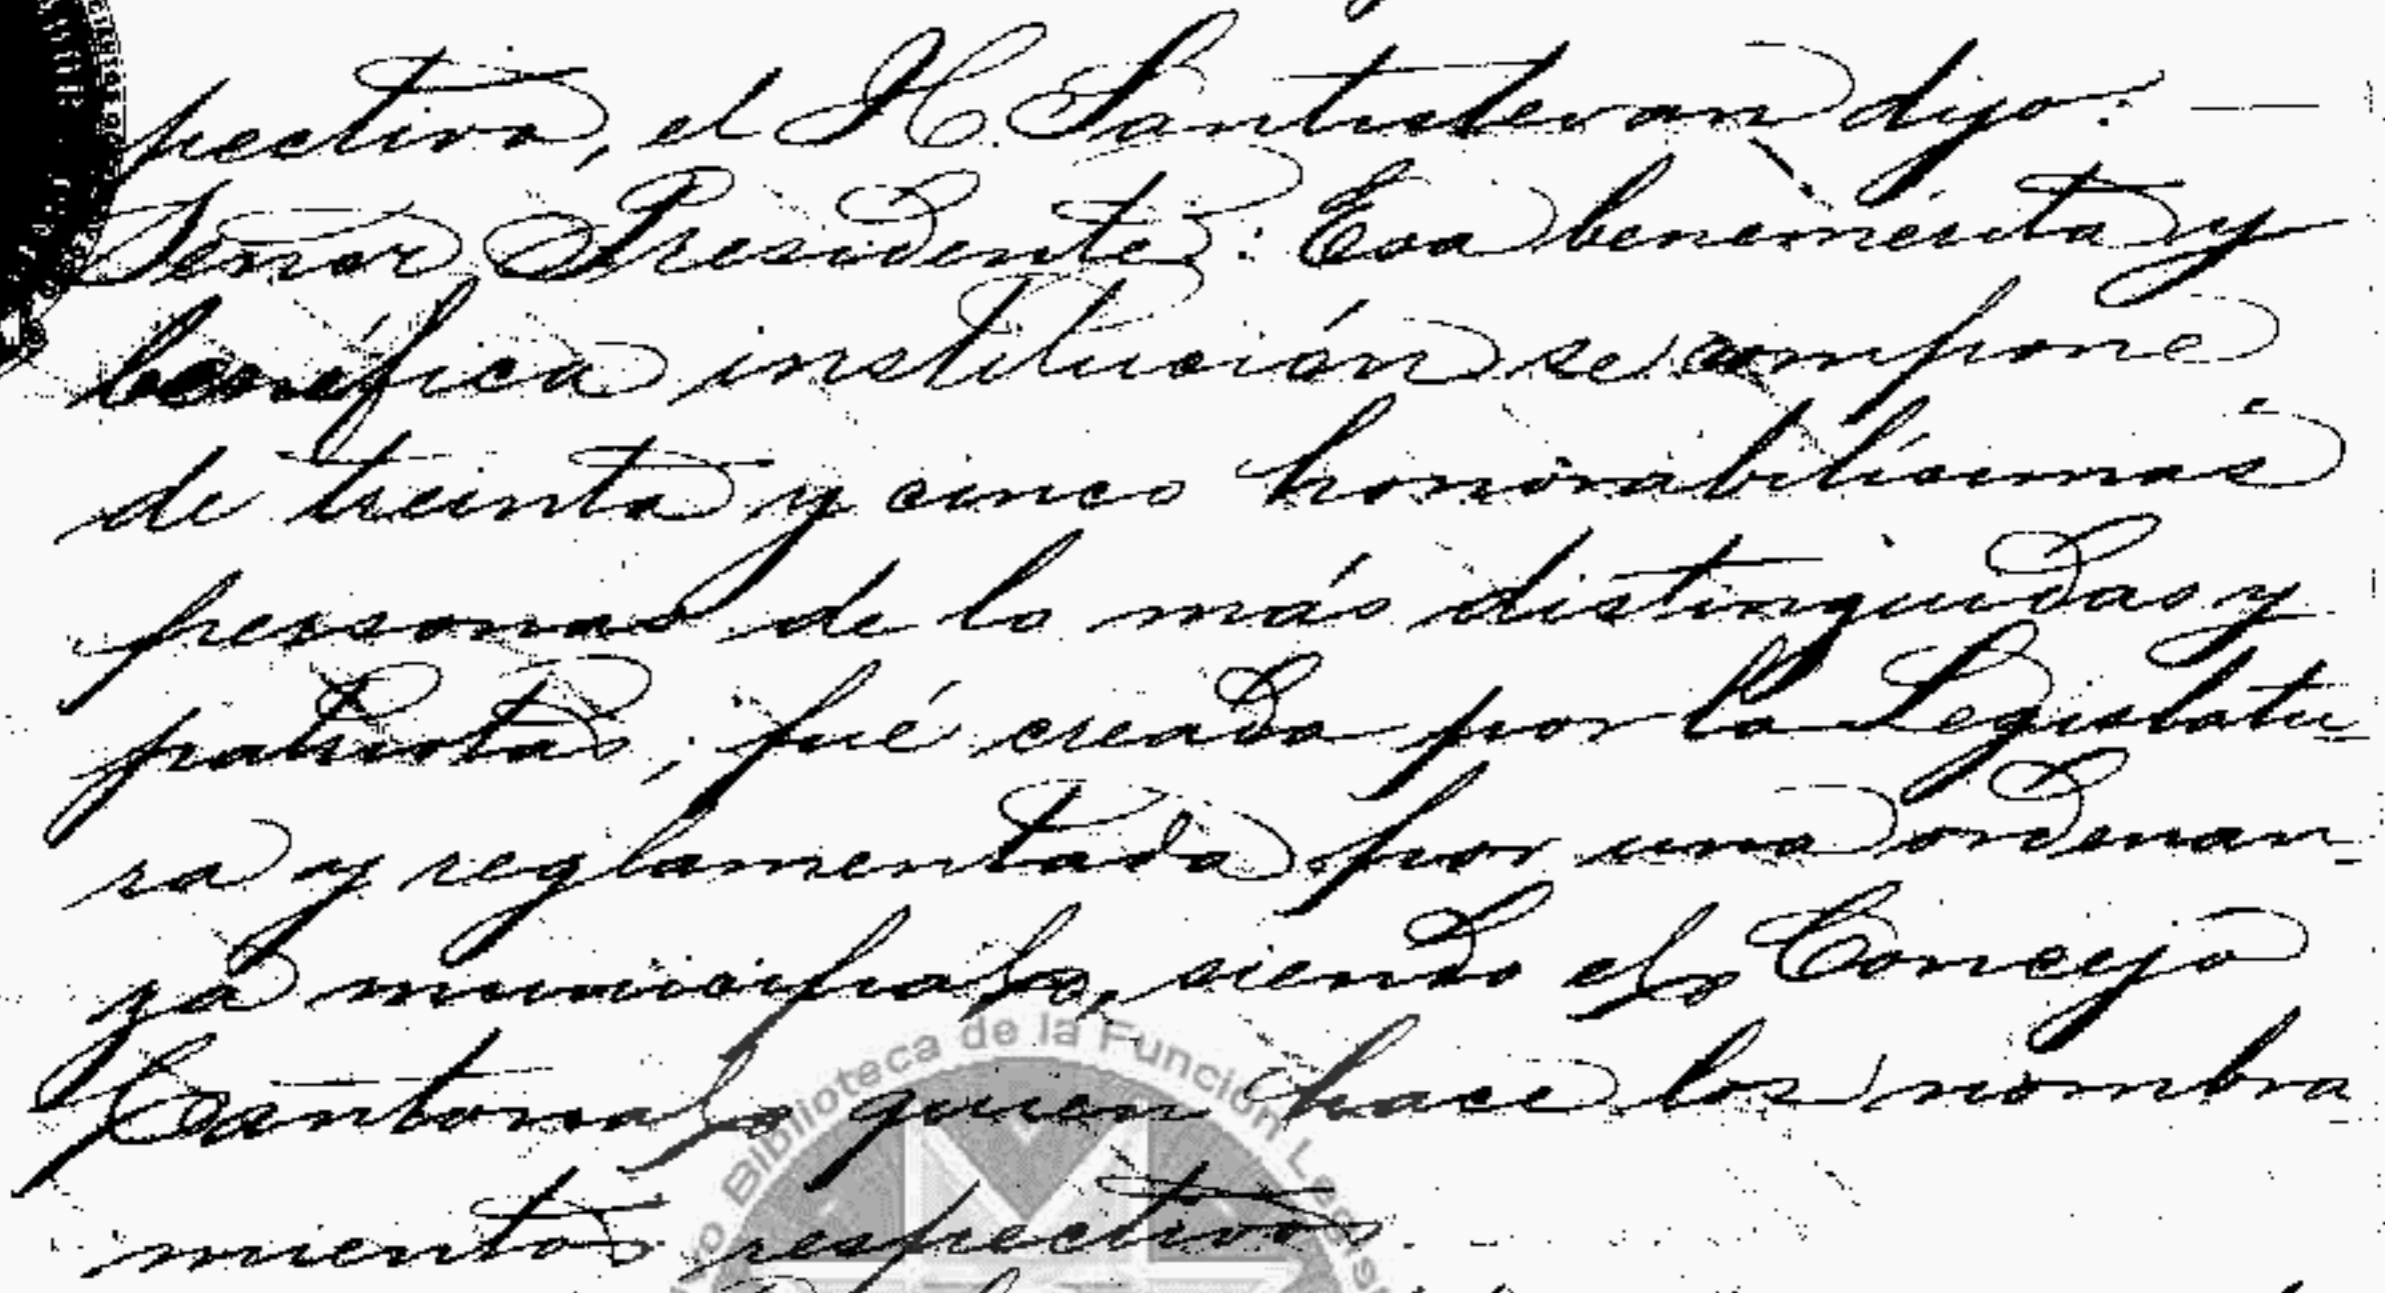 pectiva, el H. Santistevan dijo: —
Señor Presidente: Esa benemérita y
benéfica institución se compone
de treinta y cinco honorabilísimas
personas de lo más distinguidas y
patriotas; fué creada por la Legislatu-
ra y reglamentada por una ordenan-
za municipal, siendo el Concejo
Cantonal quien hace los nombra-
mientos respectivos.
Biblioteca de la Función Legis